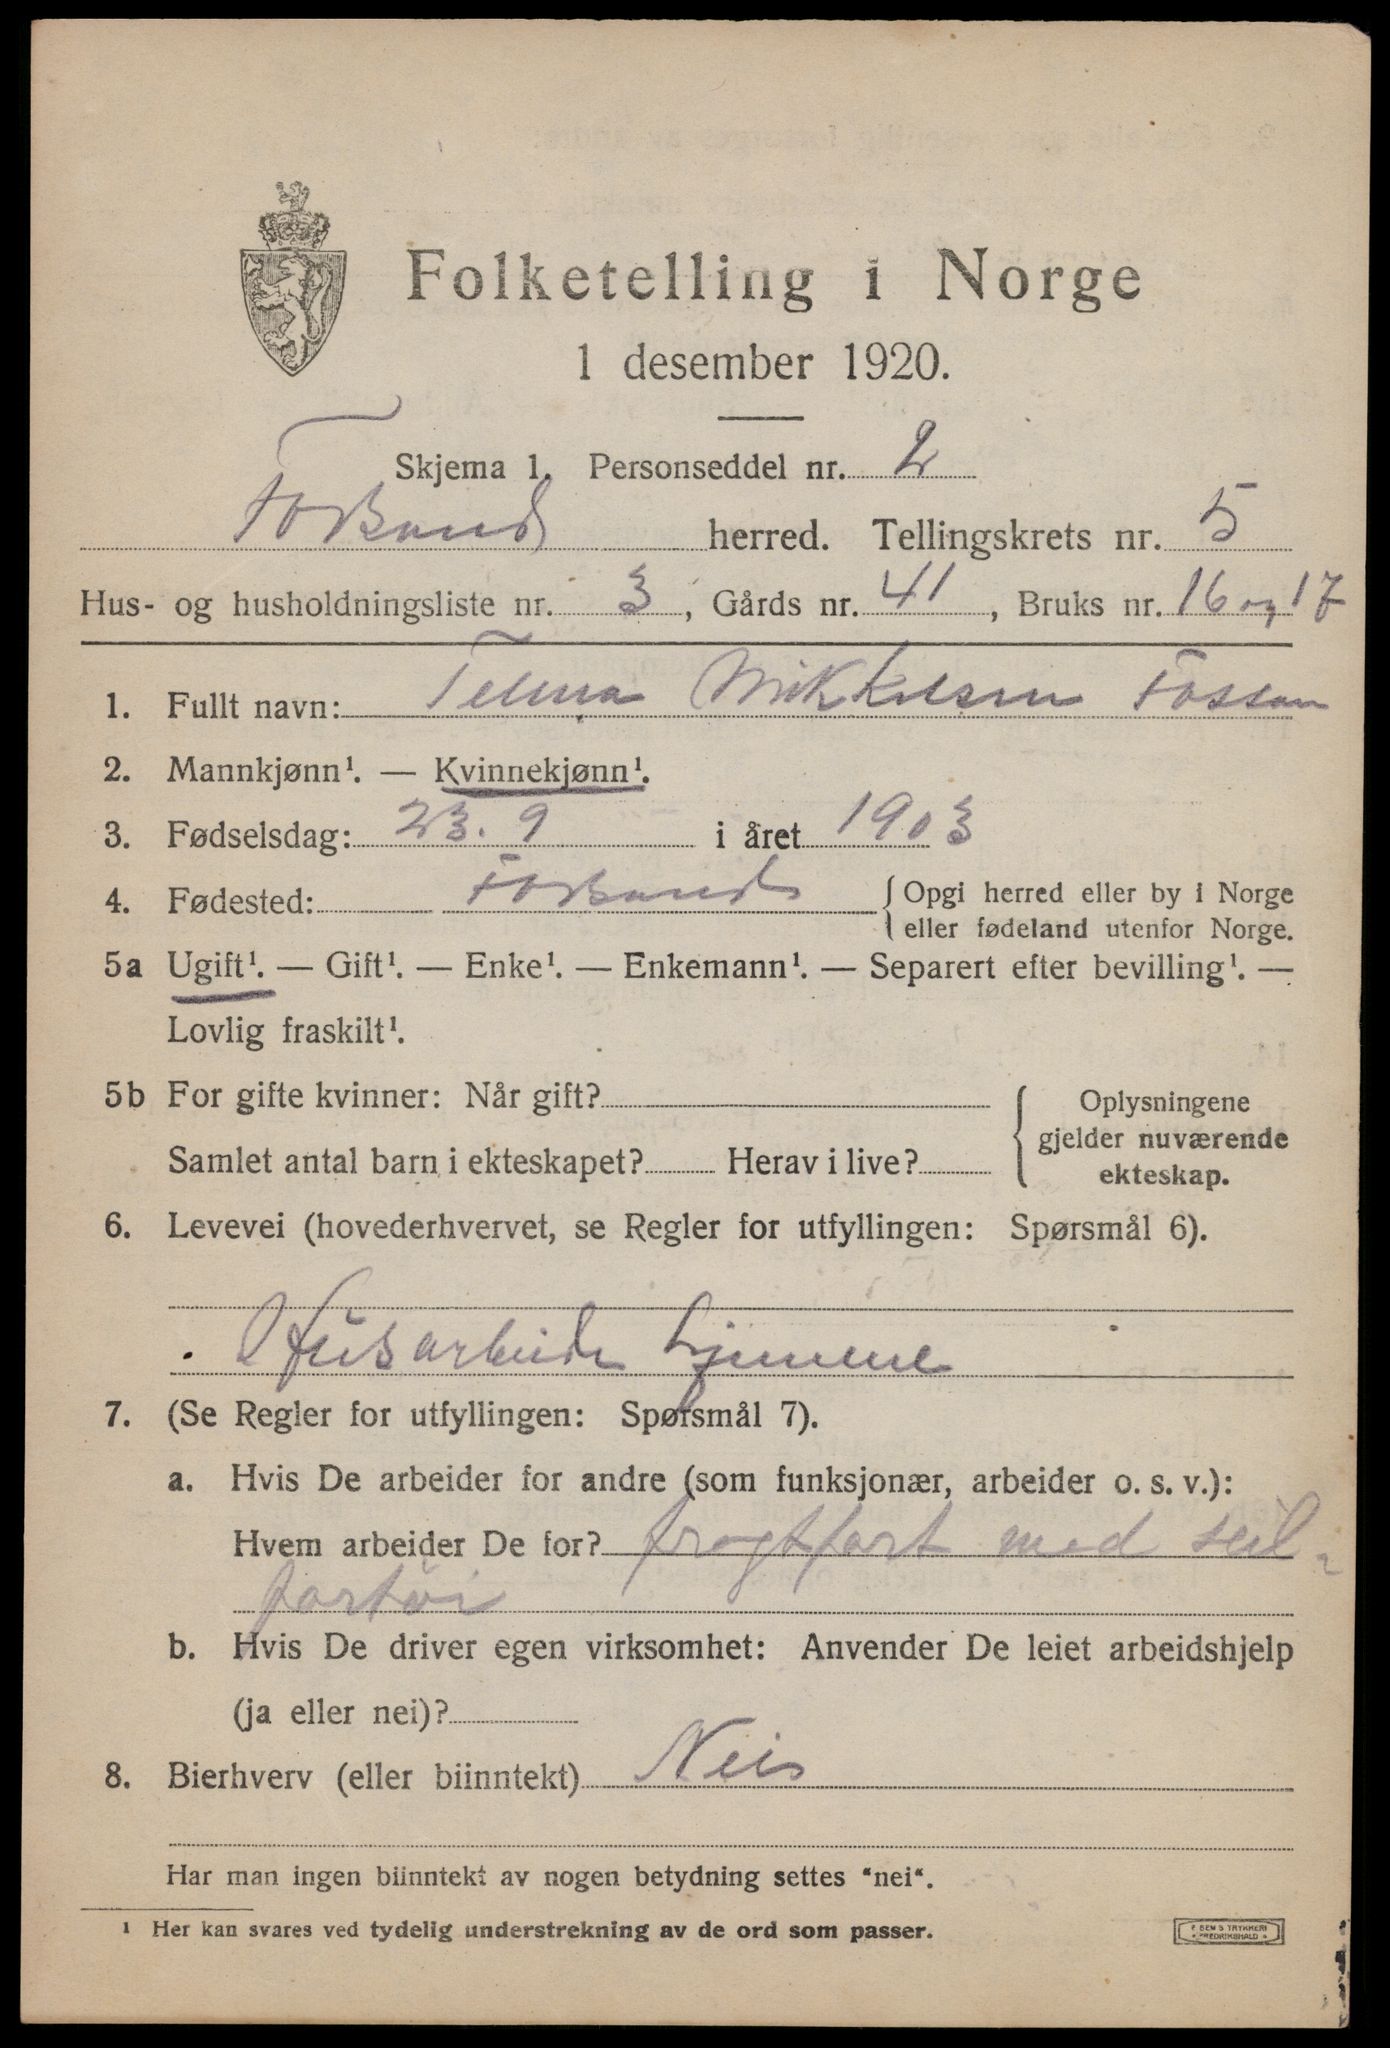 Folketelling i Norge
1 desember 1920.
Skjema 1. Personseddel nr. 2
Forsand herred. Tellingskrets nr. 5
Hus- og husholdningsliste nr. 3, Gårds nr. 41, Bruks nr. 16 og 17
1. Fullt navn: Telma Mikkelsen Fossan
2. Mannkjønn¹. — Kvinnekjønn¹.
3. Fødselsdag: 23. 9 i året 1903
4. Fødested: Forsand { Opgi herred eller by i Norge
eller fødeland utenfor Norge.
5a Ugift¹. — Gift¹. — Enke¹. — Enkemann¹. — Separert efter bevilling¹. —
Lovlig fraskilt¹.
5b For gifte kvinner: Når gift?
Samlet antal barn i ekteskapet? Herav i live?
{ Oplysningene
gjelder nuværende
ekteskap.
6. Levevei (hovederhvervet, se Regler for utfyllingen: Spørsmål 6).
Husarbeide hjemme
7. (Se Regler for utfyllingen: Spørsmål 7).
a. Hvis De arbeider for andre (som funksjonær, arbeider o. s. v.):
Hvem arbeider De for? fragtfart med seil-
fartöi
b. Hvis De driver egen virksomhet: Anvender De leiet arbeidshjelp
(ja eller nei)?
8. Bierhverv (eller biinntekt) Nei
Har man ingen biinntekt av nogen betydning settes "nei".
¹ Her kan svares ved tydelig understrekning av de ord som passer.
TRYKKERI
FREDRIKSHALD